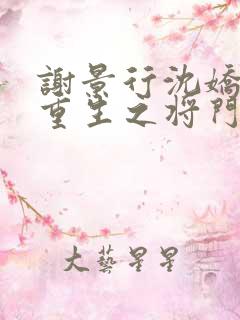 謝景行沈嬌
重生之将門
大藝星星